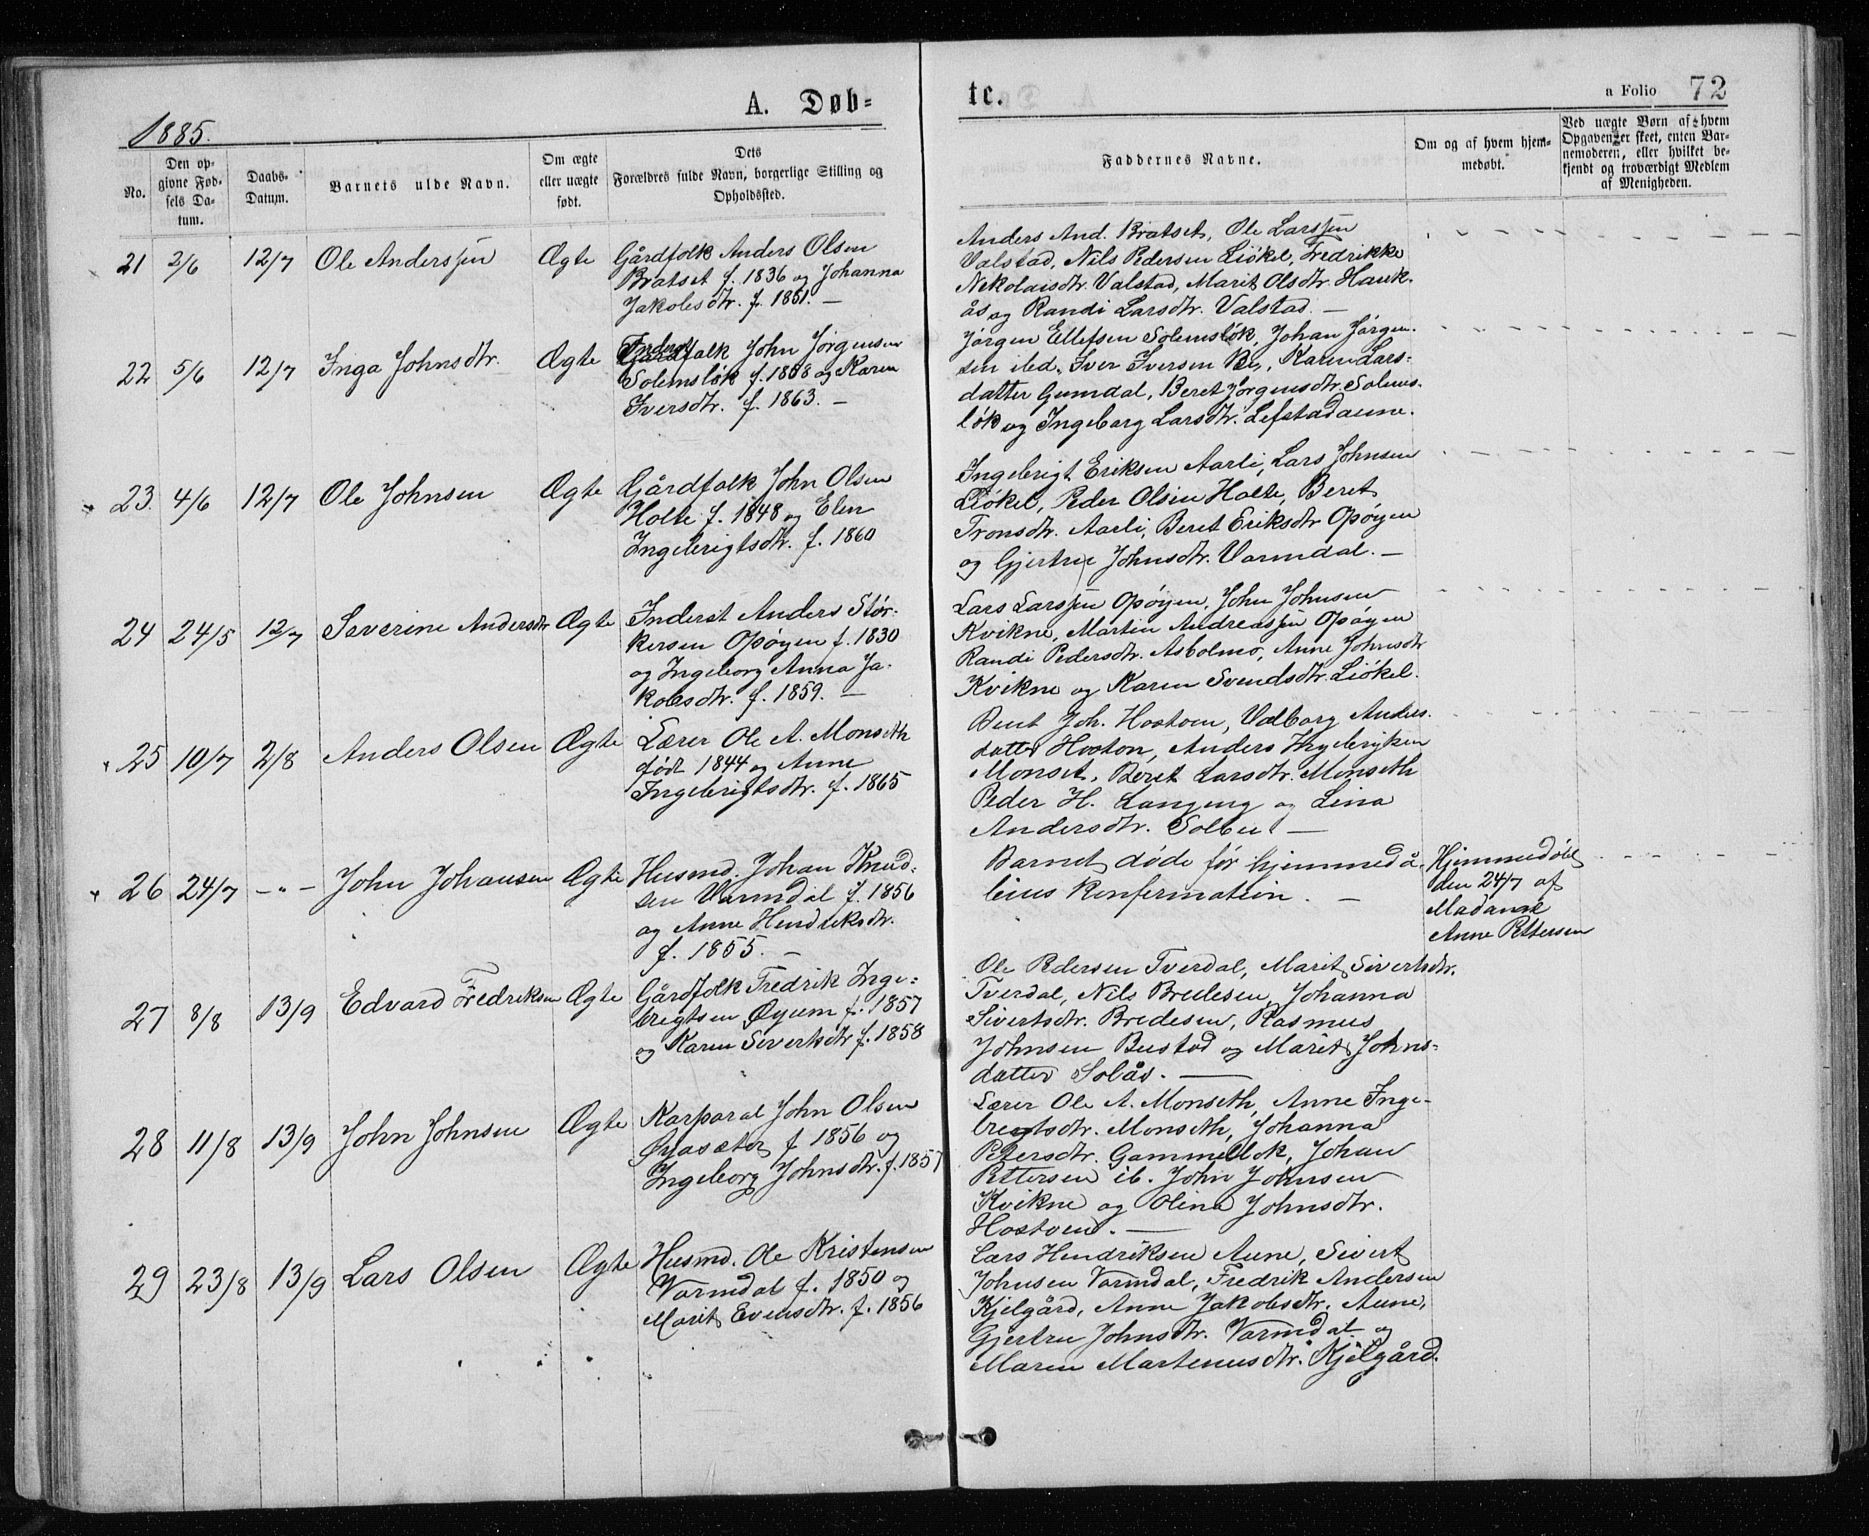 A. Døb=
1885.
No.
Den op-
givne Fød-
sels Da-
tum.
Daabs-
Datum.
Barnets fulde Navn.
Om ægte
eller uægte
født.
Dets
Forældres fulde Navn, borgerlige Stilling og
Opholdssted.
21 2/6 12/7 Ole Anderssen Ægte Gårdfolk Anders Olsen
Bratset f. 1836 og Johanna
Jakobsdtr. f. 1851. —
22 5/6 12/7 Inga Johnsdtr. Ægte Inderst John Jørgensen
Solemsløk f. 1858 og Karen
Iversdtr. f. 1863. —
23. 4/6 12/7 Ole Johnsen Ægte Gårdfolk John Olsen
Holte f. 1848 og Elen
Ingebrigtsdtr. f. 1860
24 24/5 12/7 Severine Andersdtr Ægte Inderst Anders Stør-
kersen Opøyen f. 1830
og Ingeborg Anna Ja-
kobsdtr. f. 1859. —
25 10/7 2/8 Anders Olsen Ægte Lærer Ole A. Monseth
født 1844 og Anne
Ingebrigtsdtr. f. 1865
26 24/7 —"— John Johansen Ægte Husmd. Johan Knud-
sen Varmdal f. 1856
og Anne Hendriksdtr.
f. 1855. —
27 8/8 13/9 Edvard Fredriksen Ægte Gårdfolk Fredrik Inge-
brigtsen Øyum f. 1857
og Karen Sivertsdtr f. 1858
28 11/8 13/9 John Johnsen Ægte Korporal John Olsen
Øyasæter f. 1856 og
Ingeborg Johnsdtr. f. 1857
29 23/8 13/9 Lars Olsen Ægte Husmd. Ole Kristensen
Varmdal f. 1850 og
Marit Evensdtr. f. 1856
te.
a Folio 72
Faddernes Navne.
Om og af hvem hjem-
medøbt.
Ved uægte Børn af hvem
Opgaven er skeet, enten Bar-
nemoderen, eller hvilket be-
kjendt og troværdigt Medlem
af Menigheden.
Anders And. Bratset, Ole Larssen
Valstad, Nils Pedersen Liøkel, Fredrikke
Nekolaisdtr. Valstad, Marit Olsdtr. Hauk-
ås og Randi Larsdtr. Valstad. —
Jørgen Ellefsen Solemsløk, Johan Jørgen-
sen ibed. Iver Iversen Bø, Karen Lars-
datter Gumdal, Beret Jørgensdtr. Solems-
løk og Ingeborg Larsdtr. Lefstadaune.
Ingebrigt Eriksen Aarli, Lars Johnsen
Liøkel, Peder Olsen Holte, Beret
Tronsdtr. Aarli, Beret Eriksdtr Opøyen
og Gjertru Johnsdtr. Varmdal. —
Lars Larssen Opøyen, John Johnsen
Kvikne, Martin Andreassen Opøyen
Randi Pedersdtr. Asbolmo, Anne Johnsdtr
Kvikne og Karen Svendsdtr. Liøkel.
Bent Joh. Hostoen, Valborg Anders-
datter Hoston, Anders Ingebrigtsen
Monset, Beret Larsdtr. Monseth
Peder H. Langeng og Lina
Andersdtr. Solbu —
Barnet døde før hjemmedå-
bens Konfirmation. —
Hjemmedøbt
den 24/7 af
Madame
Anne Pettersen
Ole Pedersen Tverdal, Marit Sivertsdtr.
Tverdal, Nils Bredesen, Johanna
Sivertsdtr. Bredesen, Rasmus
Johnsen Bustad og Marit Johns-
datter Solås. —
Lærer Ole A. Monseth, Anne Inge-
bregtsdtr. Monseth, Johanna
Petersdtr. Gammelløk, Johan
Pettersen ib. John Johnsen
Kvikne og Olina Johnsdtr.
Hostoen. —
Lars Hendriksen Aune, Sivert
Johnsen Varmdal, Fredrik Andersen
Kjelgård, Anne Jakobsdtr. Aune,
Gjertru Johnsdtr. Varmdal og
Maren Martenusdtr. Kjelgård.